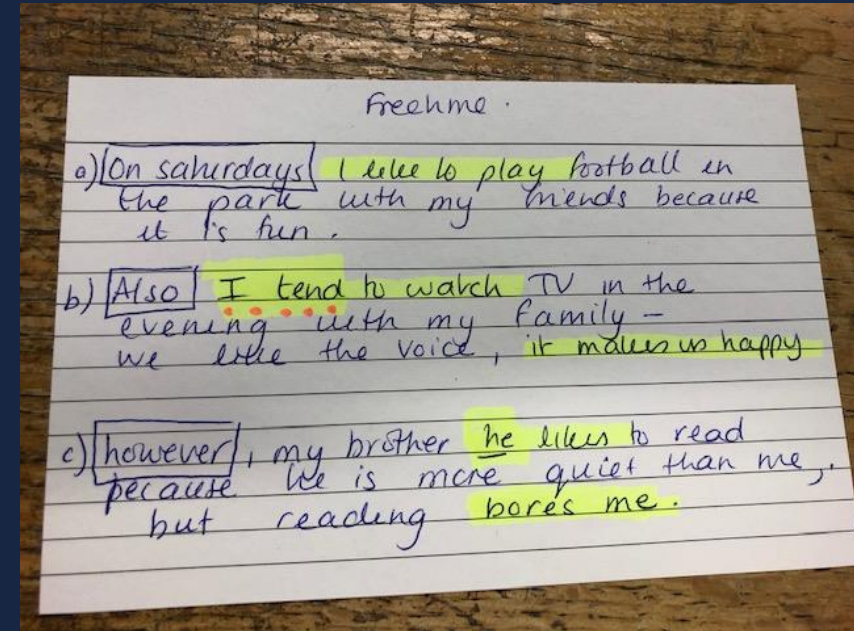 Freetime.
a) On saturdays I like to play football in
the park with my friends because
it is fun.
b) Also I tend to watch TV in the
evening with my family –
we like the voice, it makes us happy
c) however, my brother he likes to read
because he is more quiet than me,.
but reading bores me.